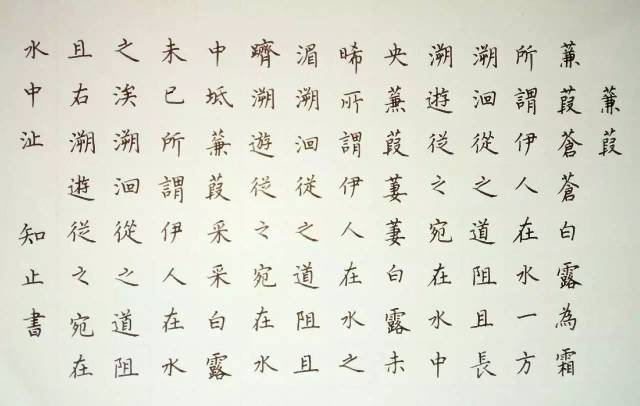 蒹葭
蒹葭蒼蒼白露為霜
所謂伊人在水一方
溯洄從之道阻且長
溯遊從之宛在水中
央蒹葭萋萋白露未
晞所謂伊人在水之
湄溯洄從之道阻且
躋溯遊從之宛在水
中坻蒹葭采采白露
未已所謂伊人在水
之涘溯洄從之道阻
且右溯遊從之宛在
水中沚 知止書